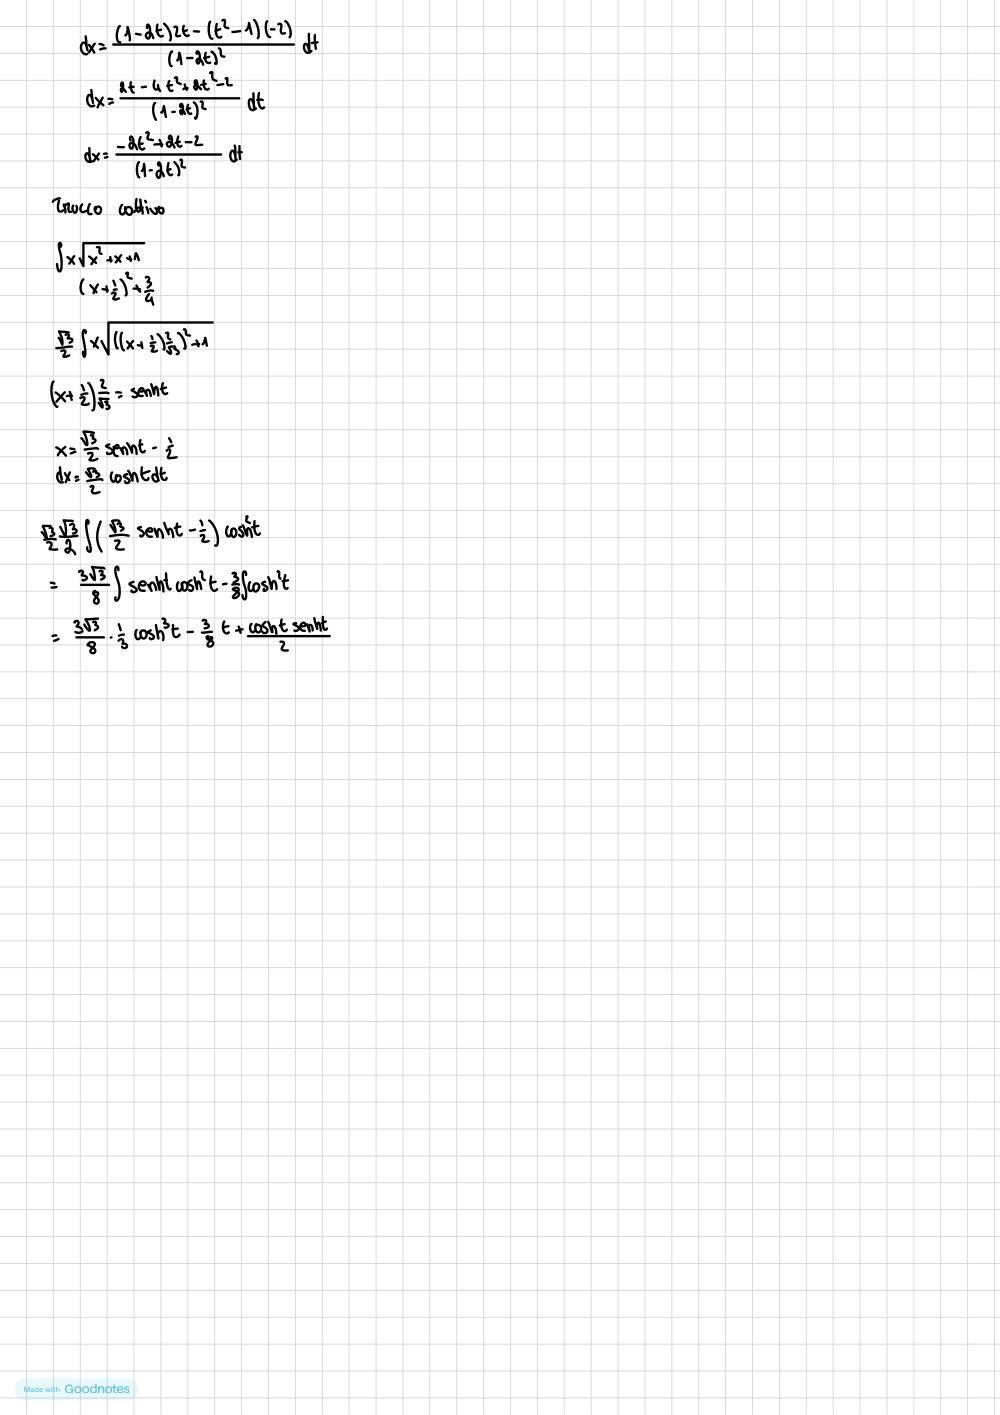 dx = \frac{(1-2t)2t - (t^2-1)(-2)}{(1-2t)^2} dt
dx = \frac{2t - 4t^2 + 2t^2 - 2}{(1-2t)^2} dt
dx = \frac{-2t^2 + 2t - 2}{(1-2t)^2} dt
Trucco cattivo
\int x \sqrt{x^2 + x + 1}
(x + \frac{1}{2})^2 + \frac{3}{4}
\frac{\sqrt{3}}{2} \int x \sqrt{((x + \frac{1}{2}) \frac{2}{\sqrt{3}})^2 + 1}
(x + \frac{1}{2}) \frac{2}{\sqrt{3}} = senht
x = \frac{\sqrt{3}}{2} senht - \frac{1}{2}
dx = \frac{\sqrt{3}}{2} cosh t dt
\frac{\sqrt{3}}{2} \frac{\sqrt{3}}{2} \int ( \frac{\sqrt{3}}{2} senht - \frac{1}{2} ) cosh^2 t
= \frac{3\sqrt{3}}{8} \int senht cosh^2 t - \frac{3}{8} \int cosh^2 t
= \frac{3\sqrt{3}}{8} \cdot \frac{1}{3} cosh^3 t - \frac{3}{8} t + \frac{cosh t senht}{2}
Made with Goodnotes